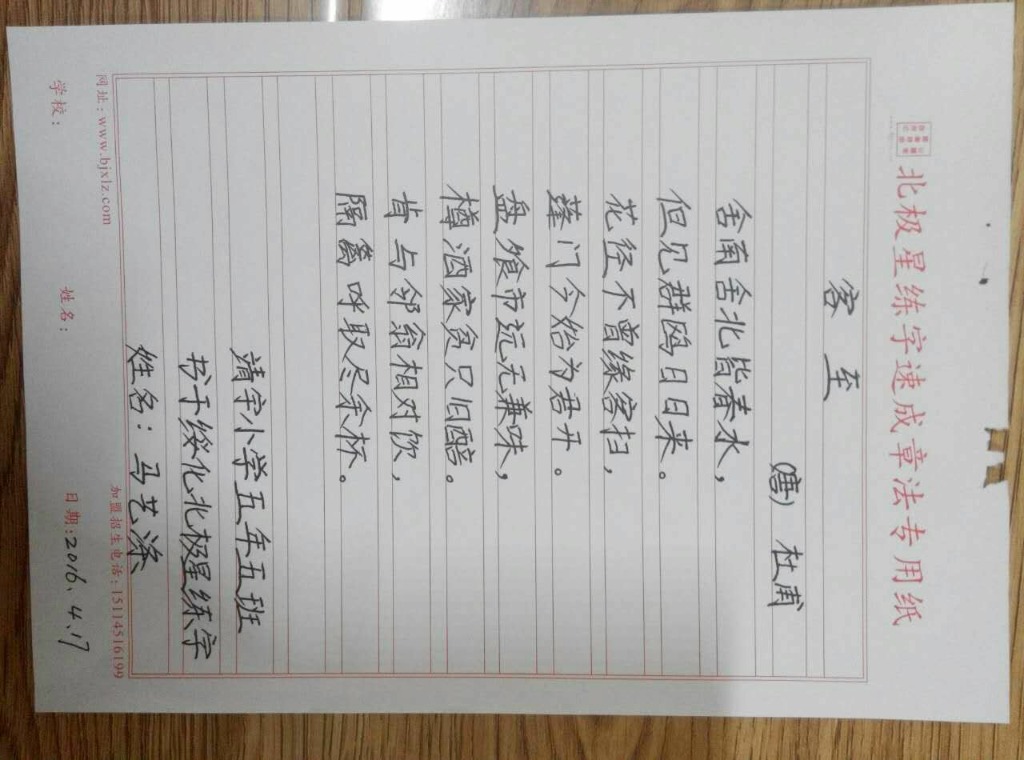 北极星练字速成章法专用纸
客至
(唐) 杜甫
舍南舍北皆春水，
但见群鸥日日来。
花径不曾缘客扫，
蓬门今始为君开。
盘飧市远无兼味，
樽酒家贫只旧醅。
肯与邻翁相对饮，
隔篱呼取尽余杯。
靖宇小学五年五班
书于绥化北极星练字
姓名：马艺涤
网址：www.bjxlz.com
加盟招生电话：15114516199
学校：
姓名：
日期：2016.4.17